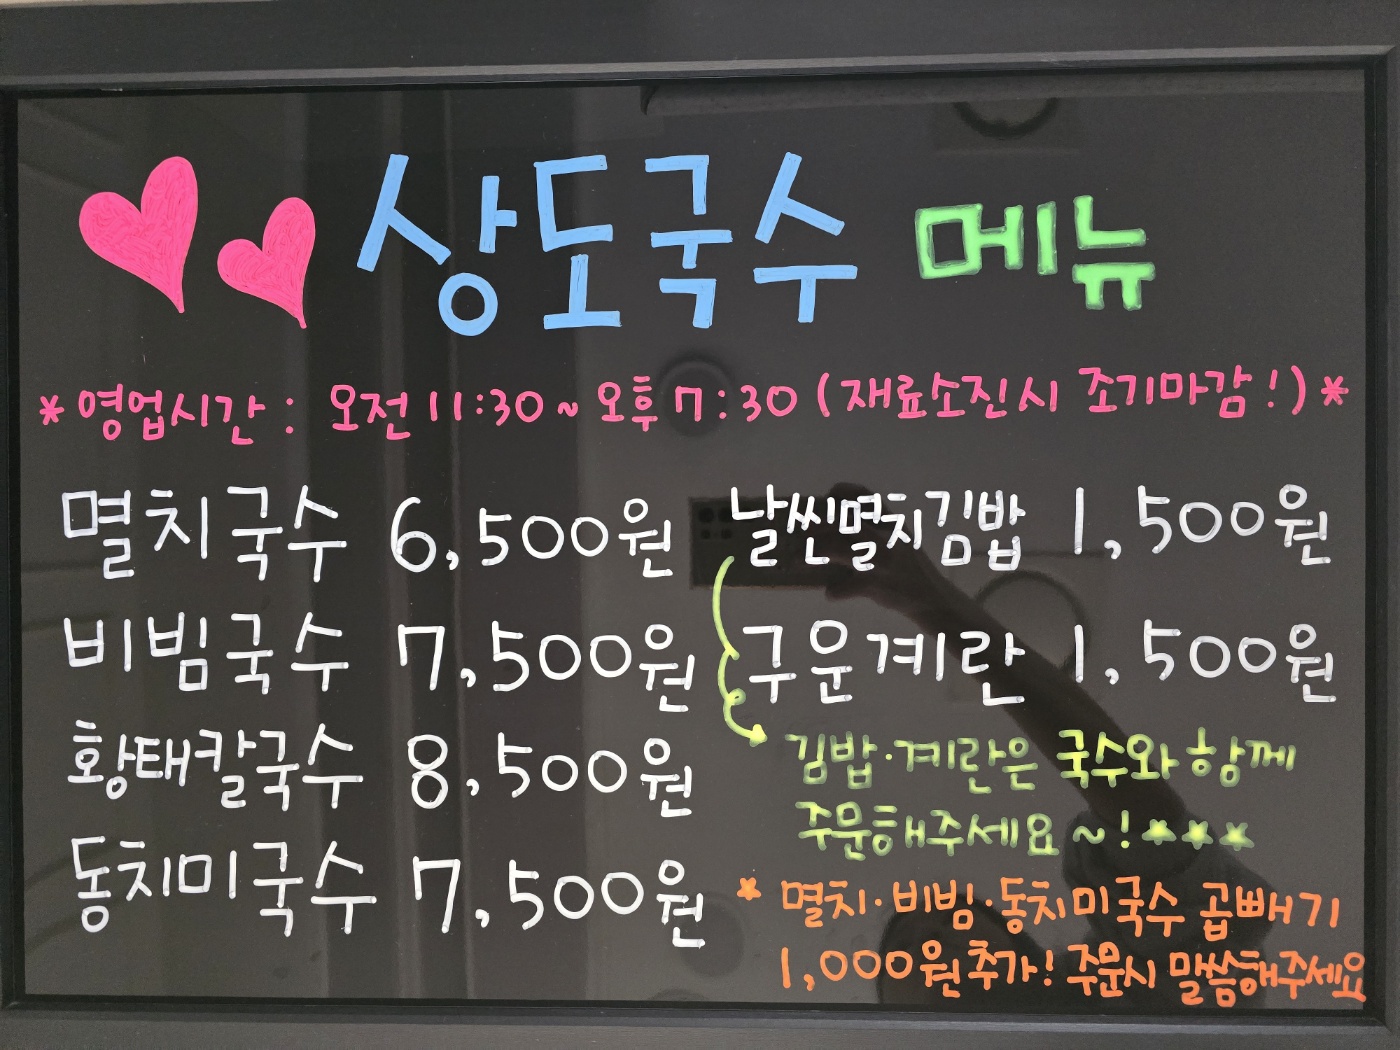 상도국수 메뉴
*영업시간: 오전 11:30~오후 7:30 (재료소진시 조기마감!)*
멸치국수 6,500원
비빔국수 7,500원
황태칼국수 8,500원
동치미국수 7,500원
날씬멸치김밥 1,500원
구운계란 1,500원
김밥·계란은 국수와 함께
주문해주세요~!★★★
* 멸치·비빔·동치미국수 곱빼기
1,000원 추가! 주문시 말씀해주세요